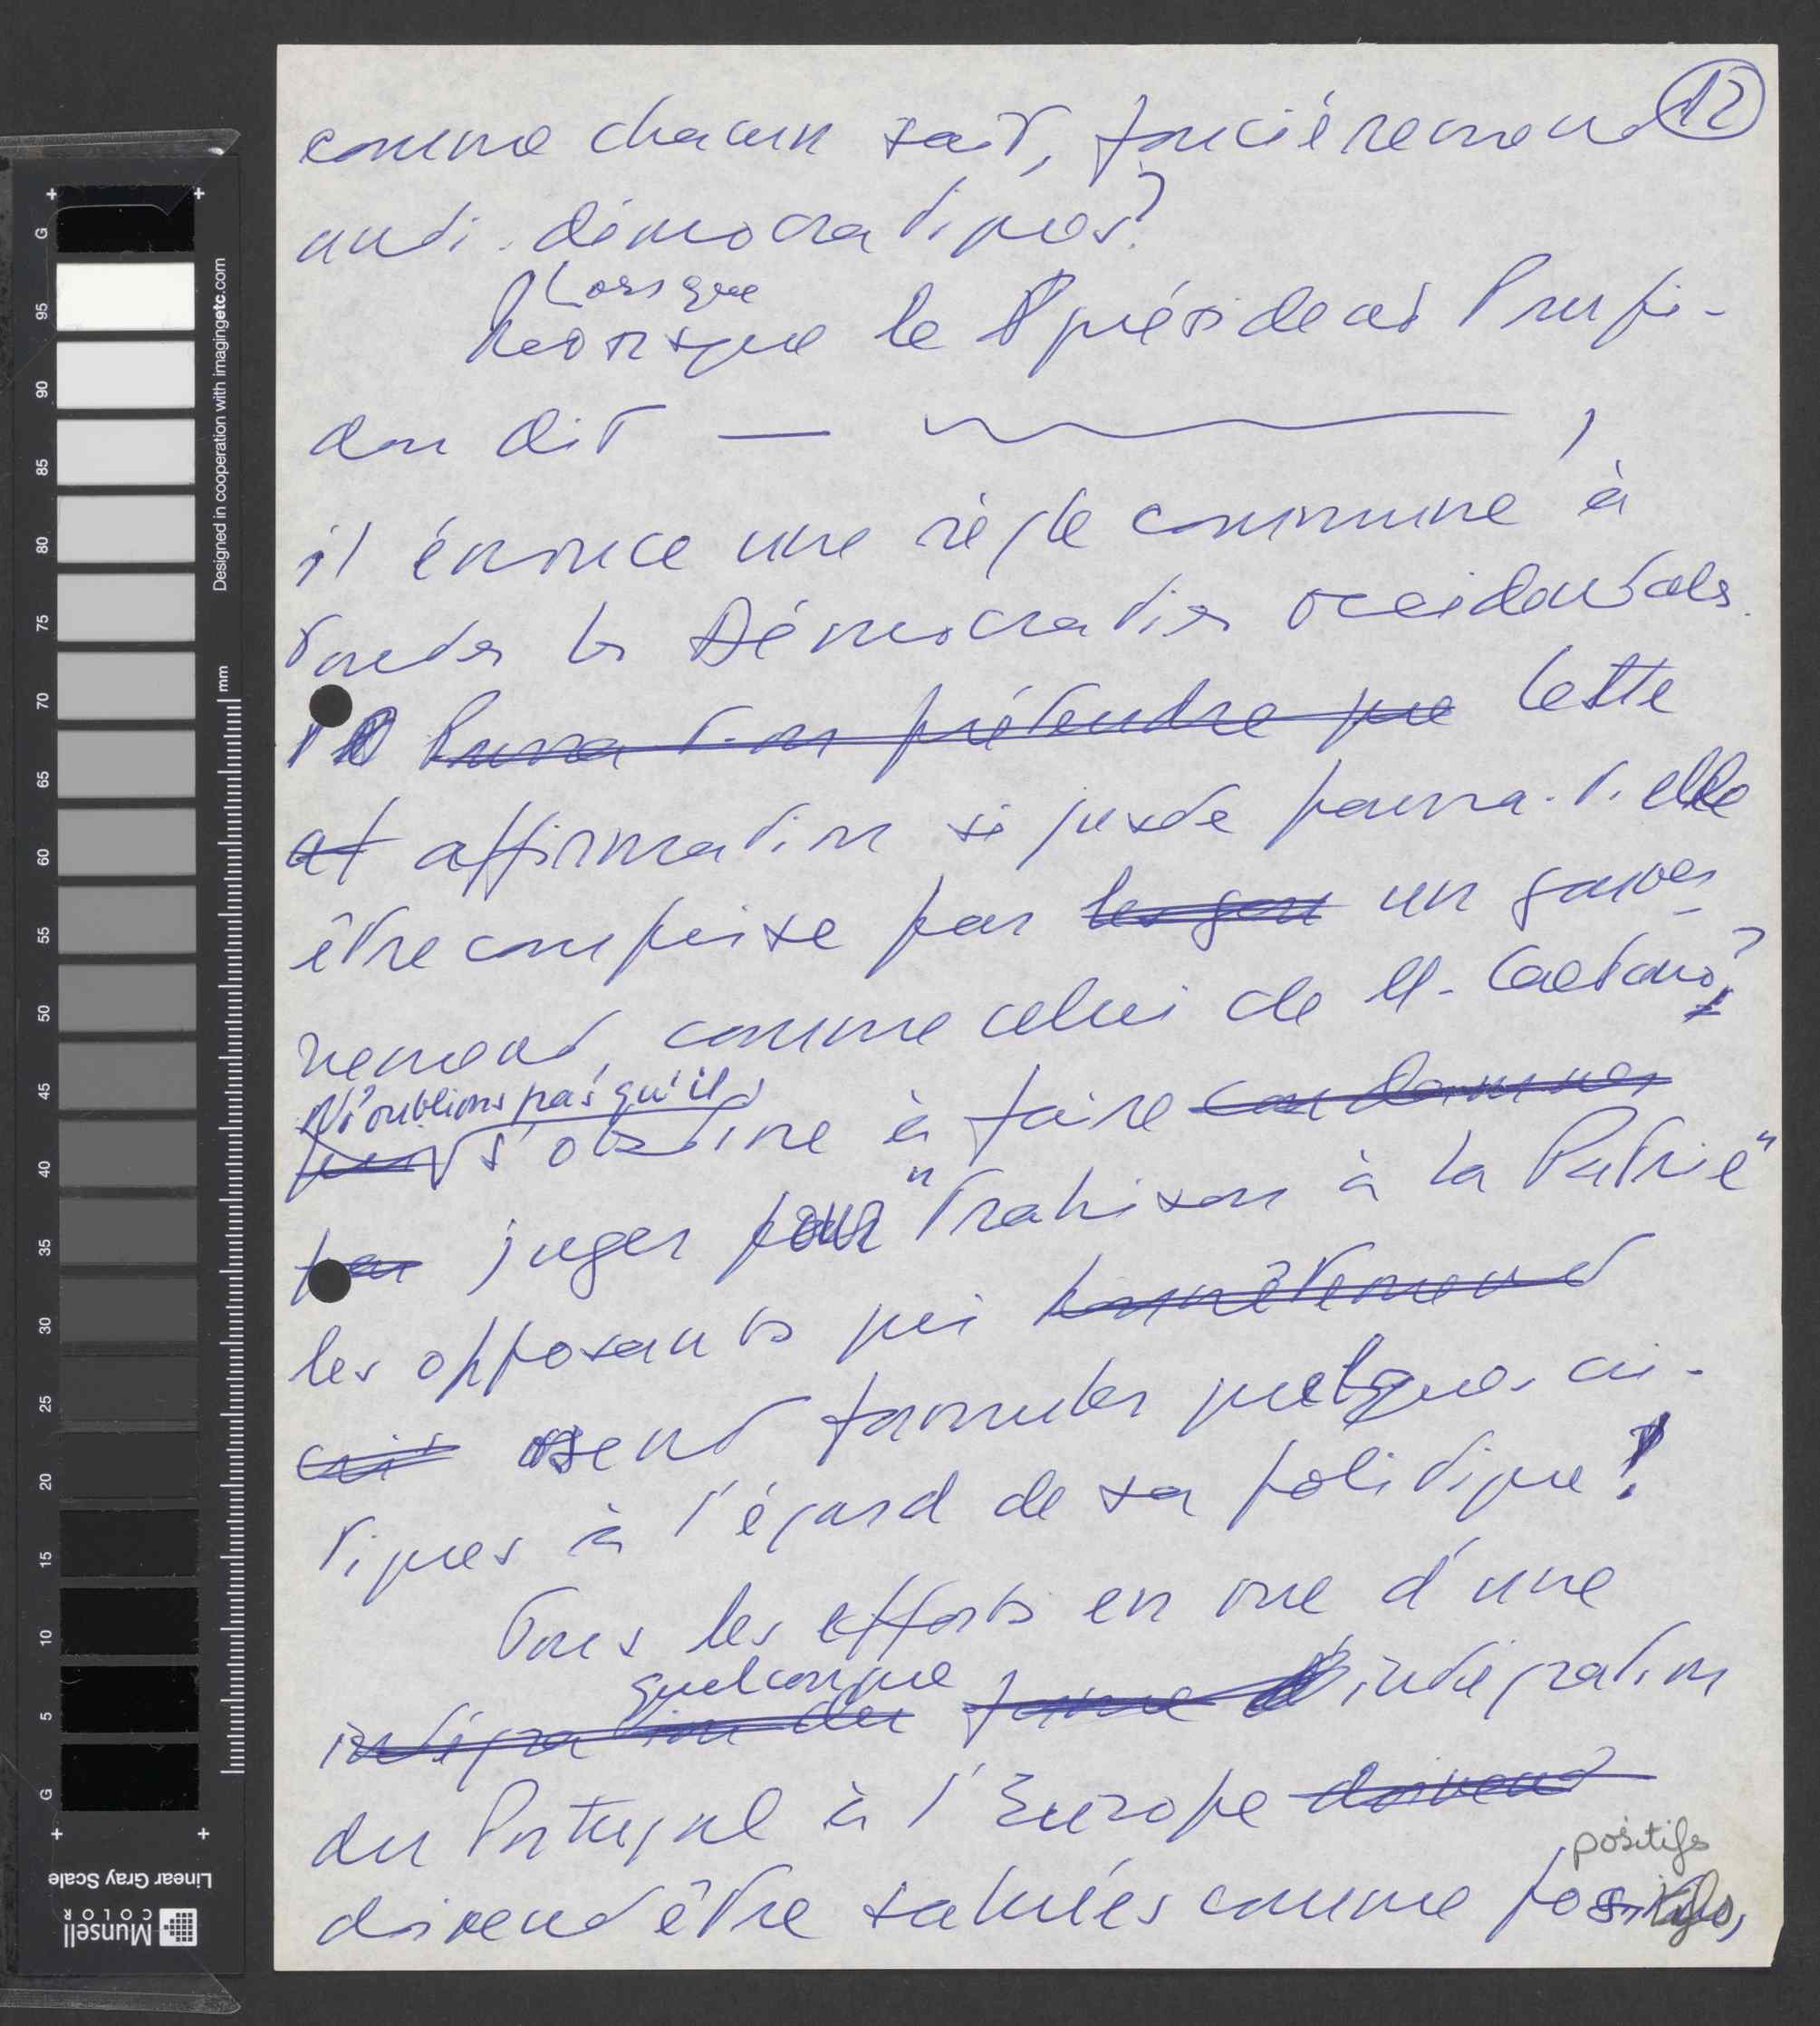 12
comme chacun sait, foncièrement
anti-démocratiques?
Lorsque
Lorsque le président Pompi-
dou dit — ,
il énonce une règle commune à
toutes les Démocraties occidentales.
Pourra-t-on prétendre que Cette
et affirmation si juste pourra-t-elle
être comprise par les gou un gouver-
nement, comme celui de M. Caetano?
N'oublions pas qu'il
qui s'obstine à faire condamner
par juger pour "trahison à la Patrie"
les opposants qui honnêtement
crit osent formuler quelques cri-
tiques à l'égard de sa politique!
Tous les efforts en vue d'une
quelconque
intégration du forme d'intégration
du Portugal à l'Europe doivent
positifs
doivent être salués comme positifs,
Designed in cooperation with imagingetc.com
mm
G
95
90
85
80
75
70
65
60
55
50
45
40
35
30
25
20
15
10
5
G
Linear Gray Scale
Munsell
COLOR